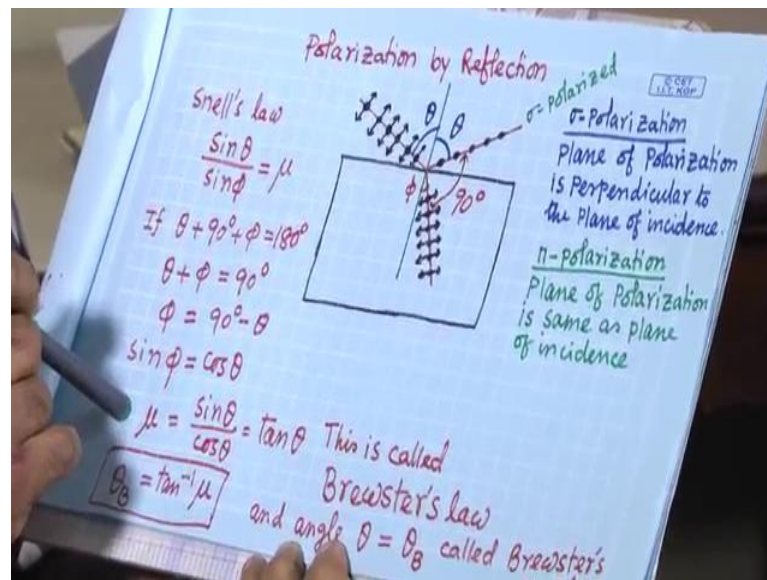 Polarization by Reflection
© CET
I.I.T. KGP
Snell's law
sinθ/sinφ = μ
If θ+90°+φ=180°
θ+φ=90°
φ = 90°-θ
sinφ=cosθ
μ = sinθ/cosθ = tanθ This is called
Brewster's law
θ_B = tan⁻¹μ
and angle θ = θ_B called Brewster's
θ
θ
σ-polarized
φ
90°
σ-Polarization
Plane of Polarization
is Perpendicular to
the Plane of incidence.
π-Polarization
Plane of Polarization
is same as plane
of incidence